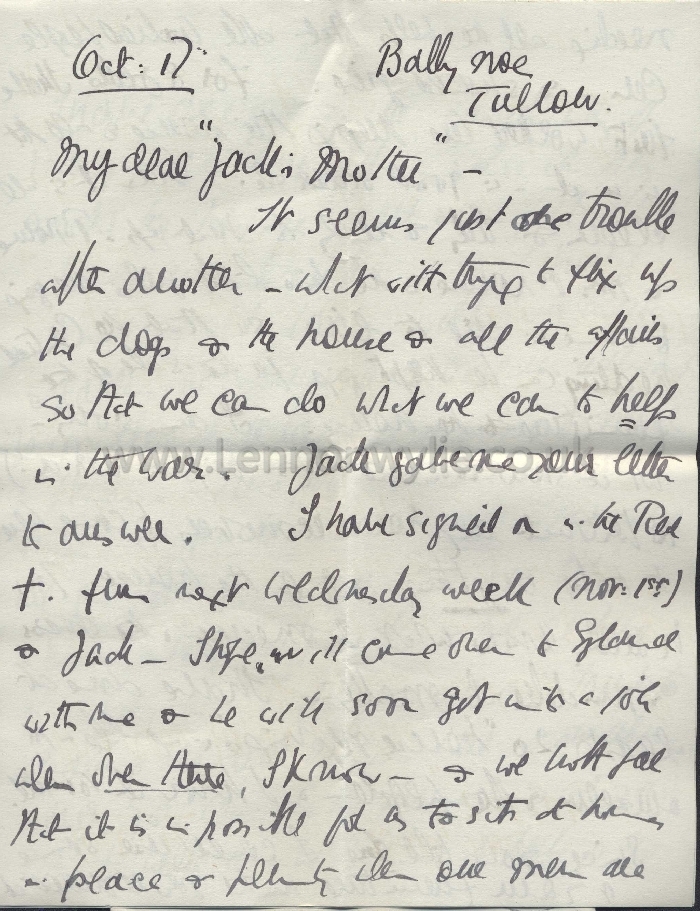 Oct: 17.
Ballynoe
Tullow.
My dear "Jack's Mother" –
It seems just one trouble
after another – what with trying to fix up
the dogs & the house & all the affairs
so that we can do what we can to help
in the war. Jack gave me your letter
to answer. I have signed on in the Red
+. from next Wednesday week (Nov: 1st)
& Jack – I hope, will come over to England
with me & he will soon get into a job
when over there, I know – & we both feel
that it is impossible for us to sit at home
in peace & plenty when our men are
www.Lennonwylie.co.uk